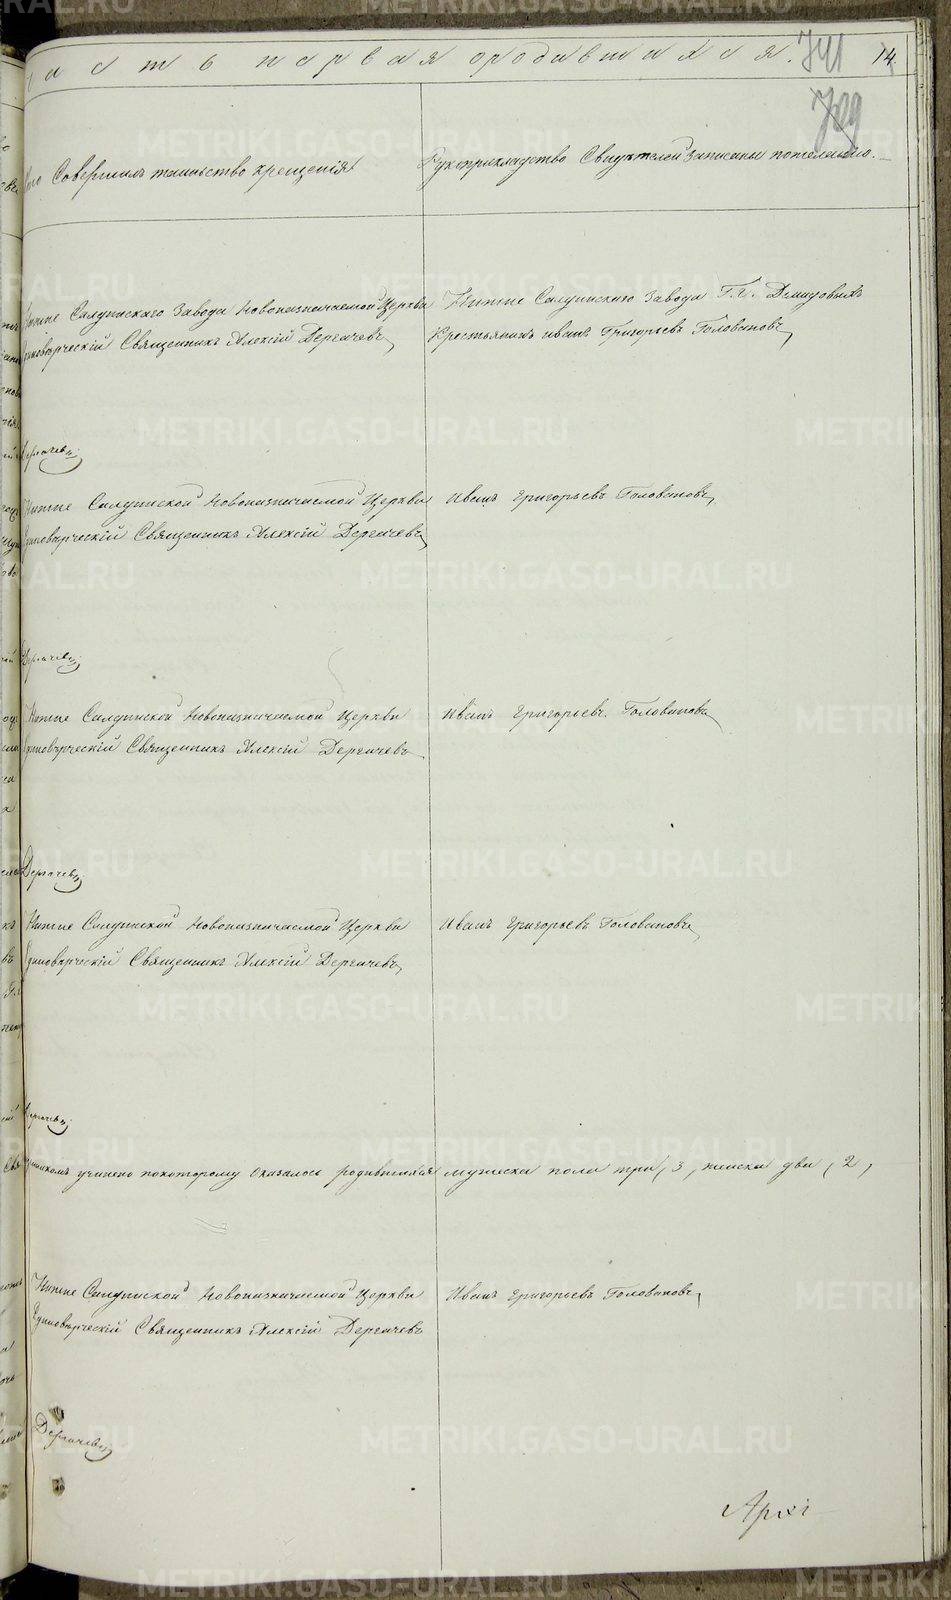 Часть перваяородившихся.
741
14.
729
Кто Совершилъ таинство крещенія
Рукоприкладство Свидѣтелей записаны пожеланию.
Нижне Салдинскаго Завода Новоназначаемой Церкви
Единовѣрческій Священникъ Алексій Дергачевъ
Нижне Салдинскаго Завода Г.г. Демидовыхъ
Крестьянинъ Иванъ Григорьевъ Головановъ
Дергачевъ
Нижне Салдинской Новоназначаемой Церкви
Единовѣрческій Священникъ Алексій Дергачевъ
Иванъ Григорьевъ Головановъ
Дергачевъ
Нижне Салдинской Новоназначаемой Церкви
Единовѣрческій Священникъ Алексій Дергачевъ
Иванъ Григорьевъ Головановъ
Дергачевъ
Нижне Салдинской Новоназначаемой Церкви
Единовѣрческій Священникъ Алексій Дергачевъ
Иванъ Григорьевъ Головановъ
Дергачевъ
учинено покоторому оказалось родившихся мужеска пола три, 3, женска два, 2,
Нижне Салдинской Новоназначаемой Церкви
Единовѣрческій Священникъ Алексій Дергачевъ
Иванъ Григорьевъ Головановъ
Дергачевъ
Архі
METRIKI.GASO-URAL.RU